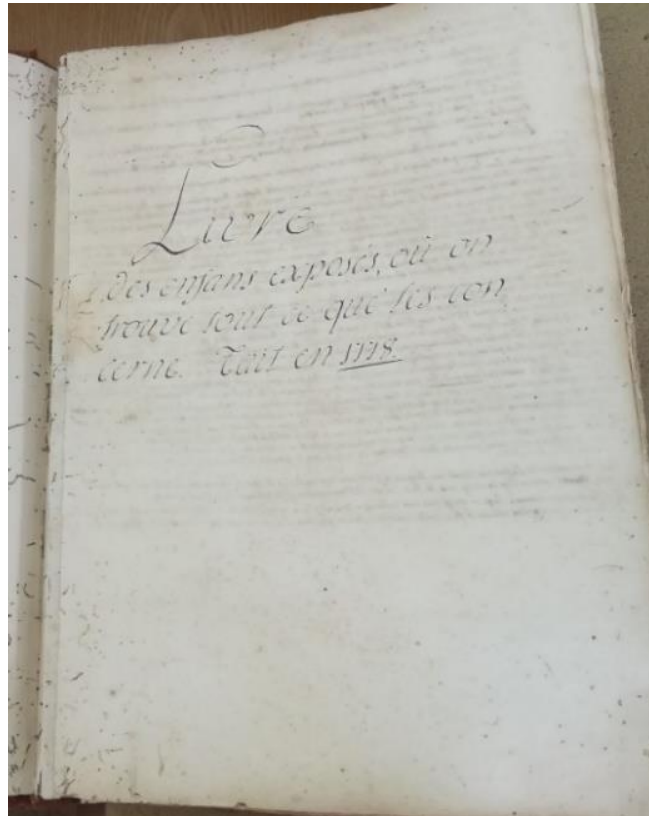 Livre
des enfans exposés, où on
trouve tout ce que les con
cerne. Fait en 1718.